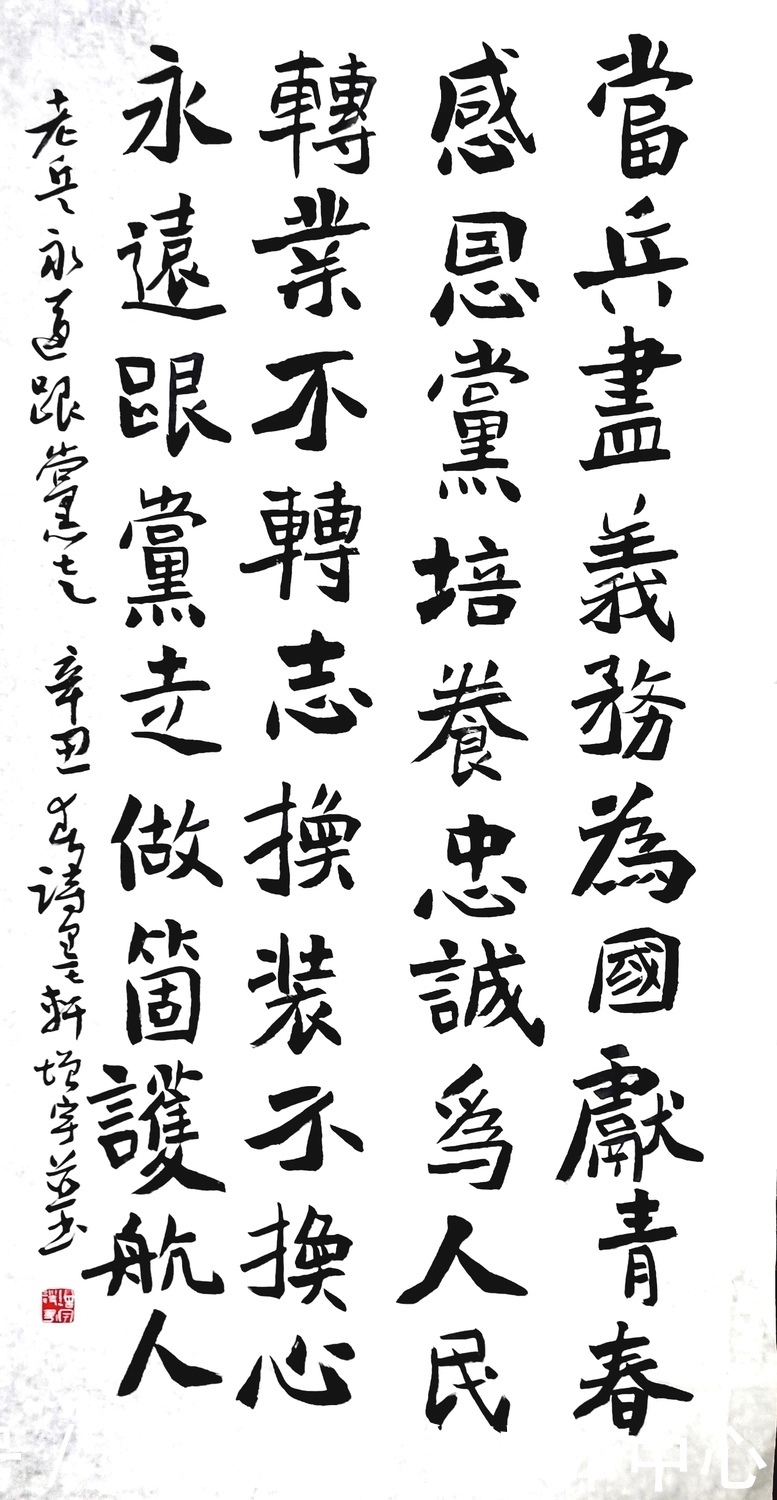 當兵盡義務為國獻青春
感恩黨培養忠誠爲人民
轉業不轉志換装不換心
永遠跟黨走做箇護航人
老兵永遠跟黨走 辛丑春詩墨軒增宇並书
中心